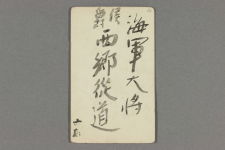 海軍大将
侯爵
西郷従道